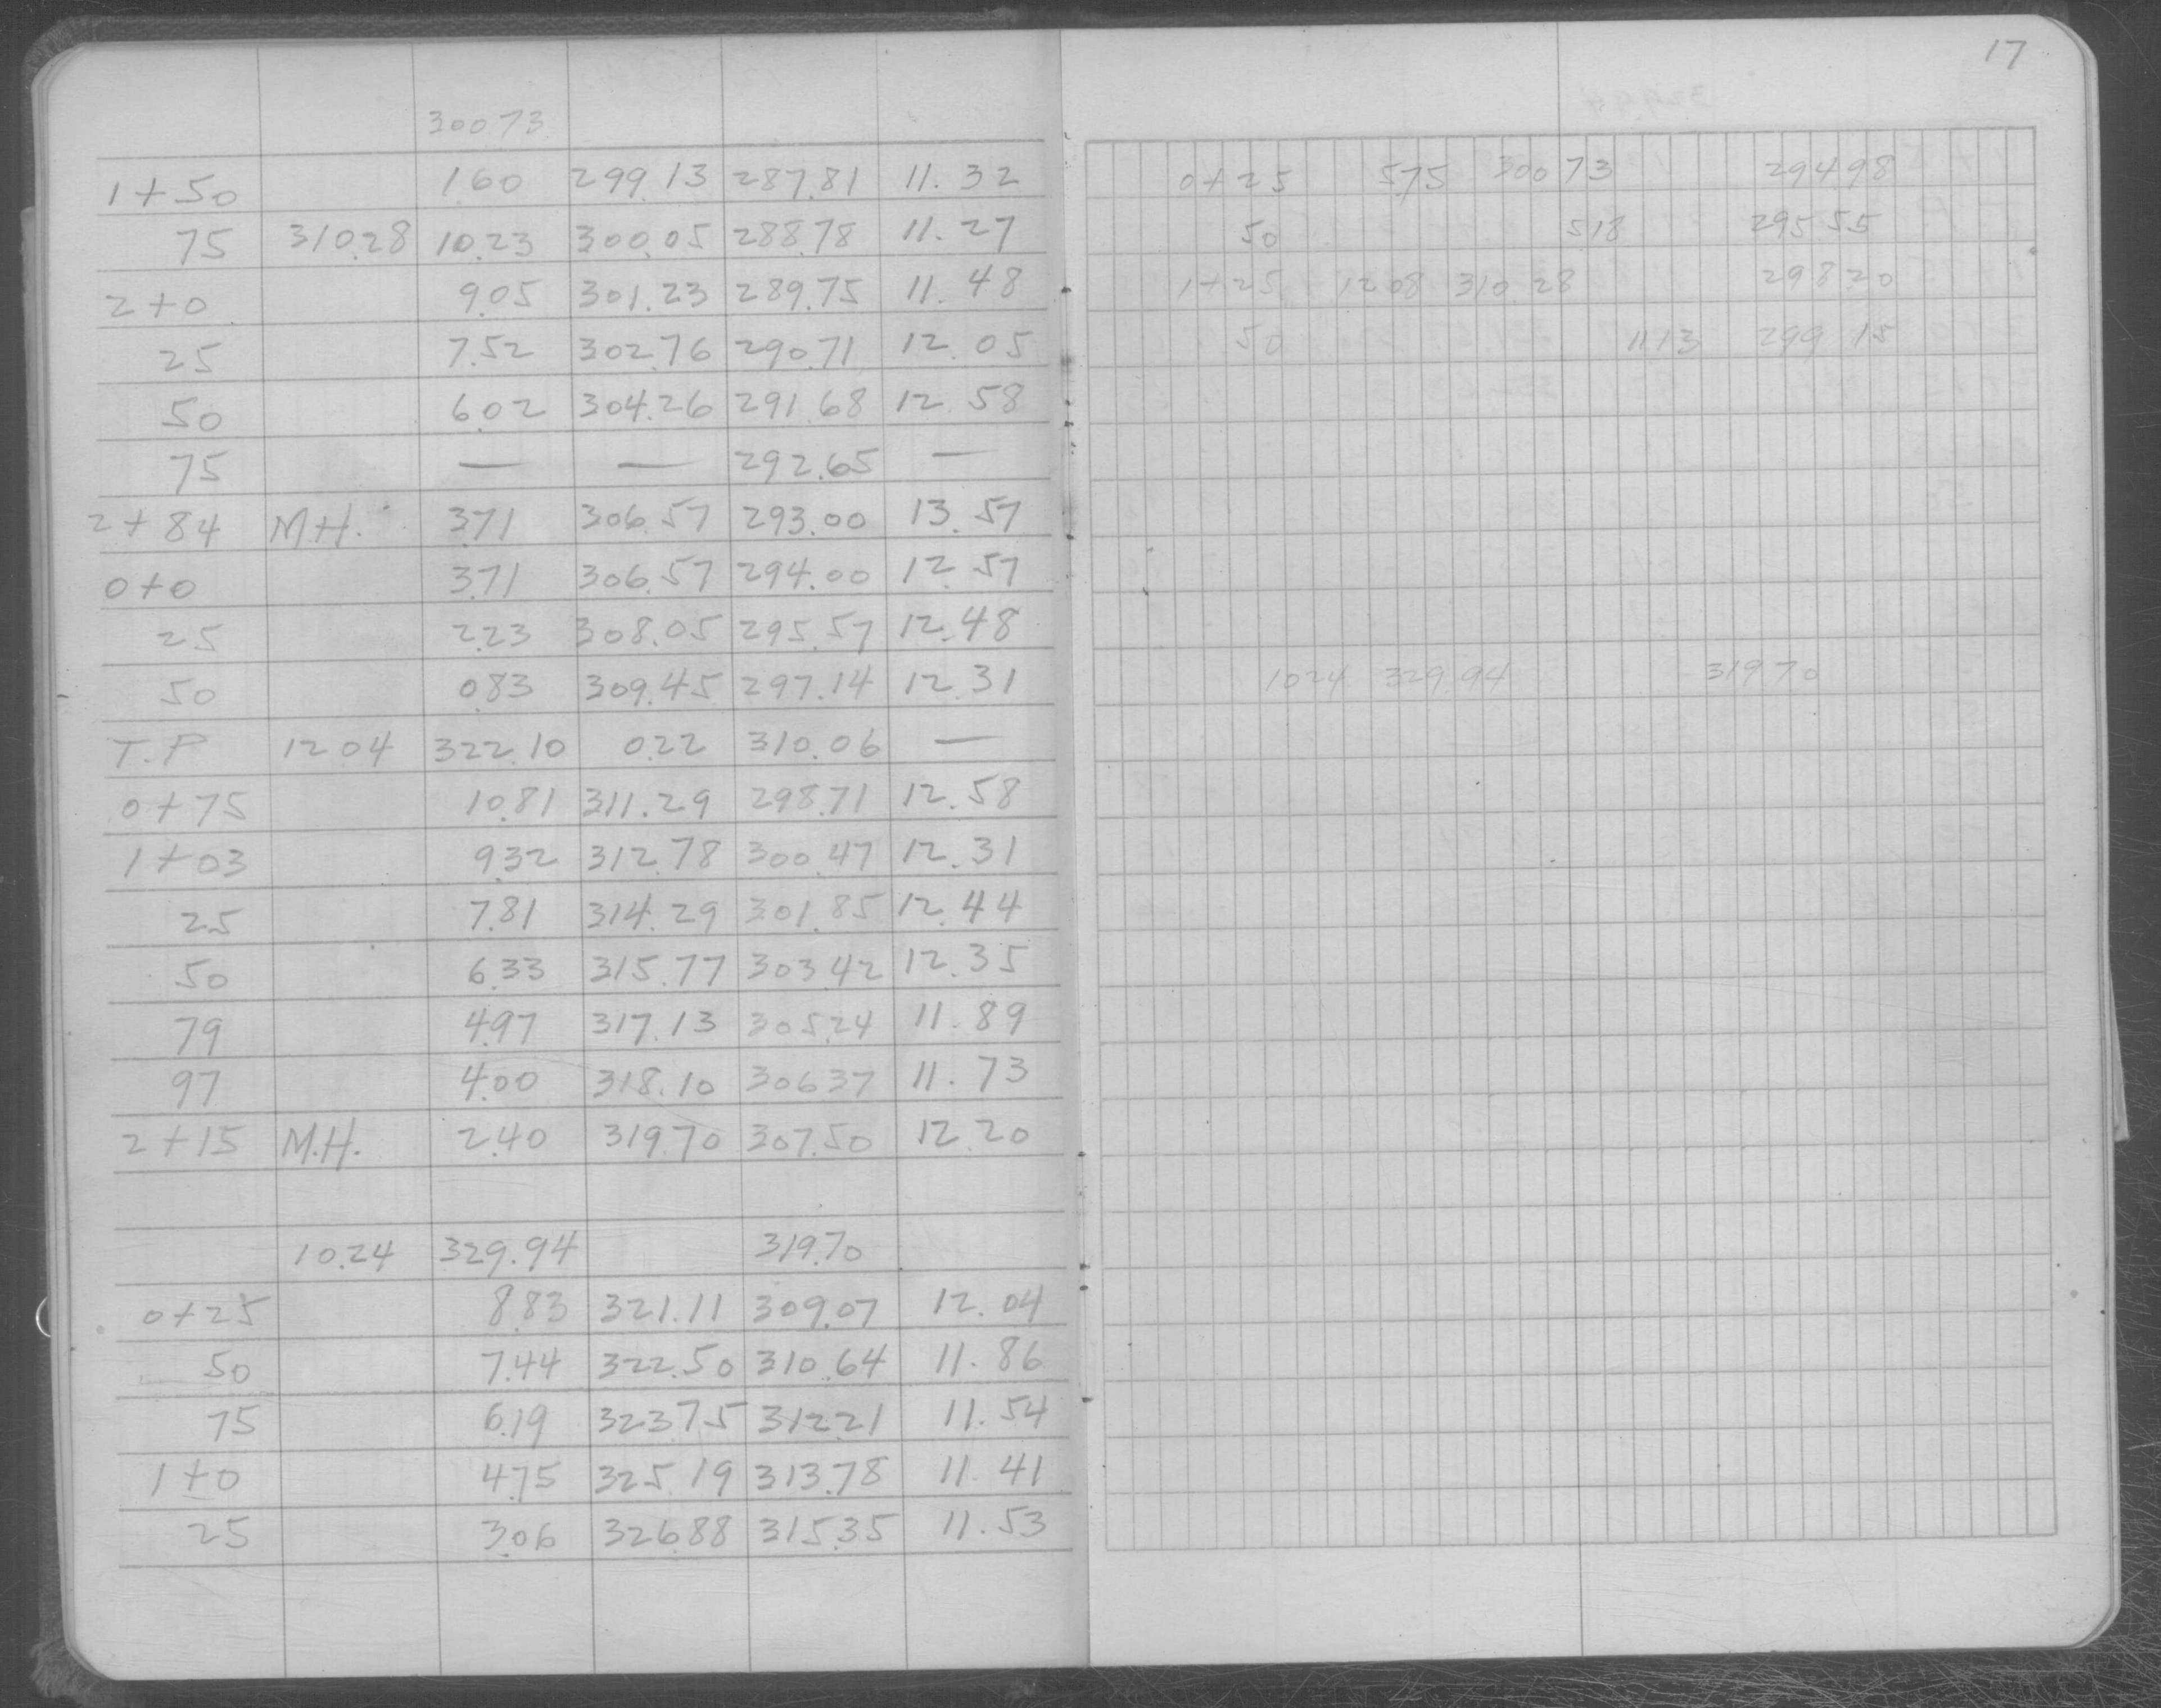 17
300.73
1+50 1.60 299.13 287.81 11.32
75 310.28 10.23 300.05 288.78 11.27
2+0 9.05 301.23 289.75 11.48
25 7.52 302.76 290.71 12.05
50 6.02 304.26 291.68 12.58
75 — — 292.65 —
2+84 M.H. 3.71 306.57 293.00 13.57
0+0 3.71 306.57 294.00 12.57
25 2.23 308.05 295.57 12.48
50 0.83 309.45 297.14 12.31
T.P 12.04 322.10 0.22 310.06 —
0+75 10.81 311.29 298.71 12.58
1+03 9.32 312.78 300.47 12.31
25 7.81 314.29 301.85 12.44
50 6.33 315.77 303.42 12.35
79 4.97 317.13 305.24 11.89
97 4.00 318.10 306.37 11.73
2+15 M.H. 2.40 319.70 307.50 12.20
10.24 329.94 319.70
0+25 8.83 321.11 309.07 12.04
50 7.44 322.50 310.64 11.86
75 6.19 323.75 312.21 11.54
1+0 4.75 325.19 313.78 11.41
25 3.06 326.88 315.35 11.53
0+25 5.75 300.73 294.98
50 5.18 295.55
1+25 12.08 310.28 298.20
50 11.13 299.15
10.24 329.94 319.70